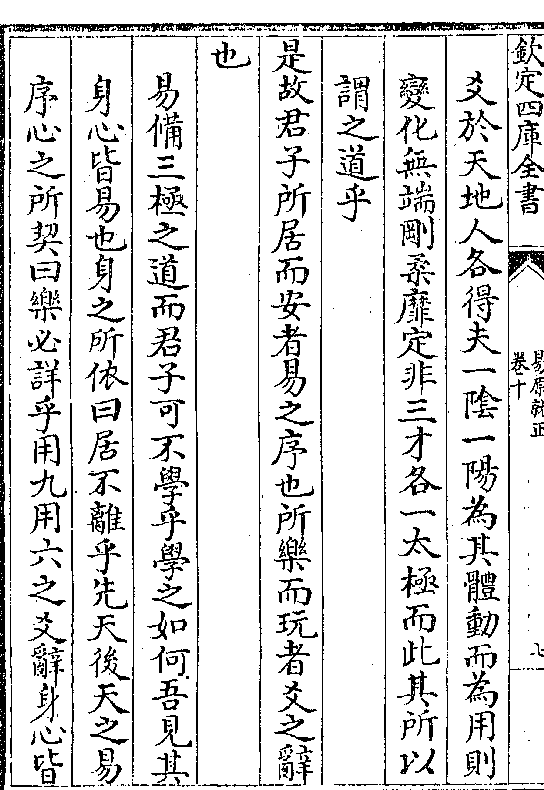 欽定四庫全書
易原就正
卷十
七
爻於天地人各得夫一陰一陽為其體動而為用則
變化無端剛柔靡定非三才各一太極而此其所以
謂之道乎
是故君子所居而安者易之序也所樂而玩者爻之辭
也
易備三極之道而君子可不學乎學之如何吾見其
身心皆易也身之所依曰居不離乎先天後天之易
序心之所契曰樂必詳乎用九用六之爻辭身心皆